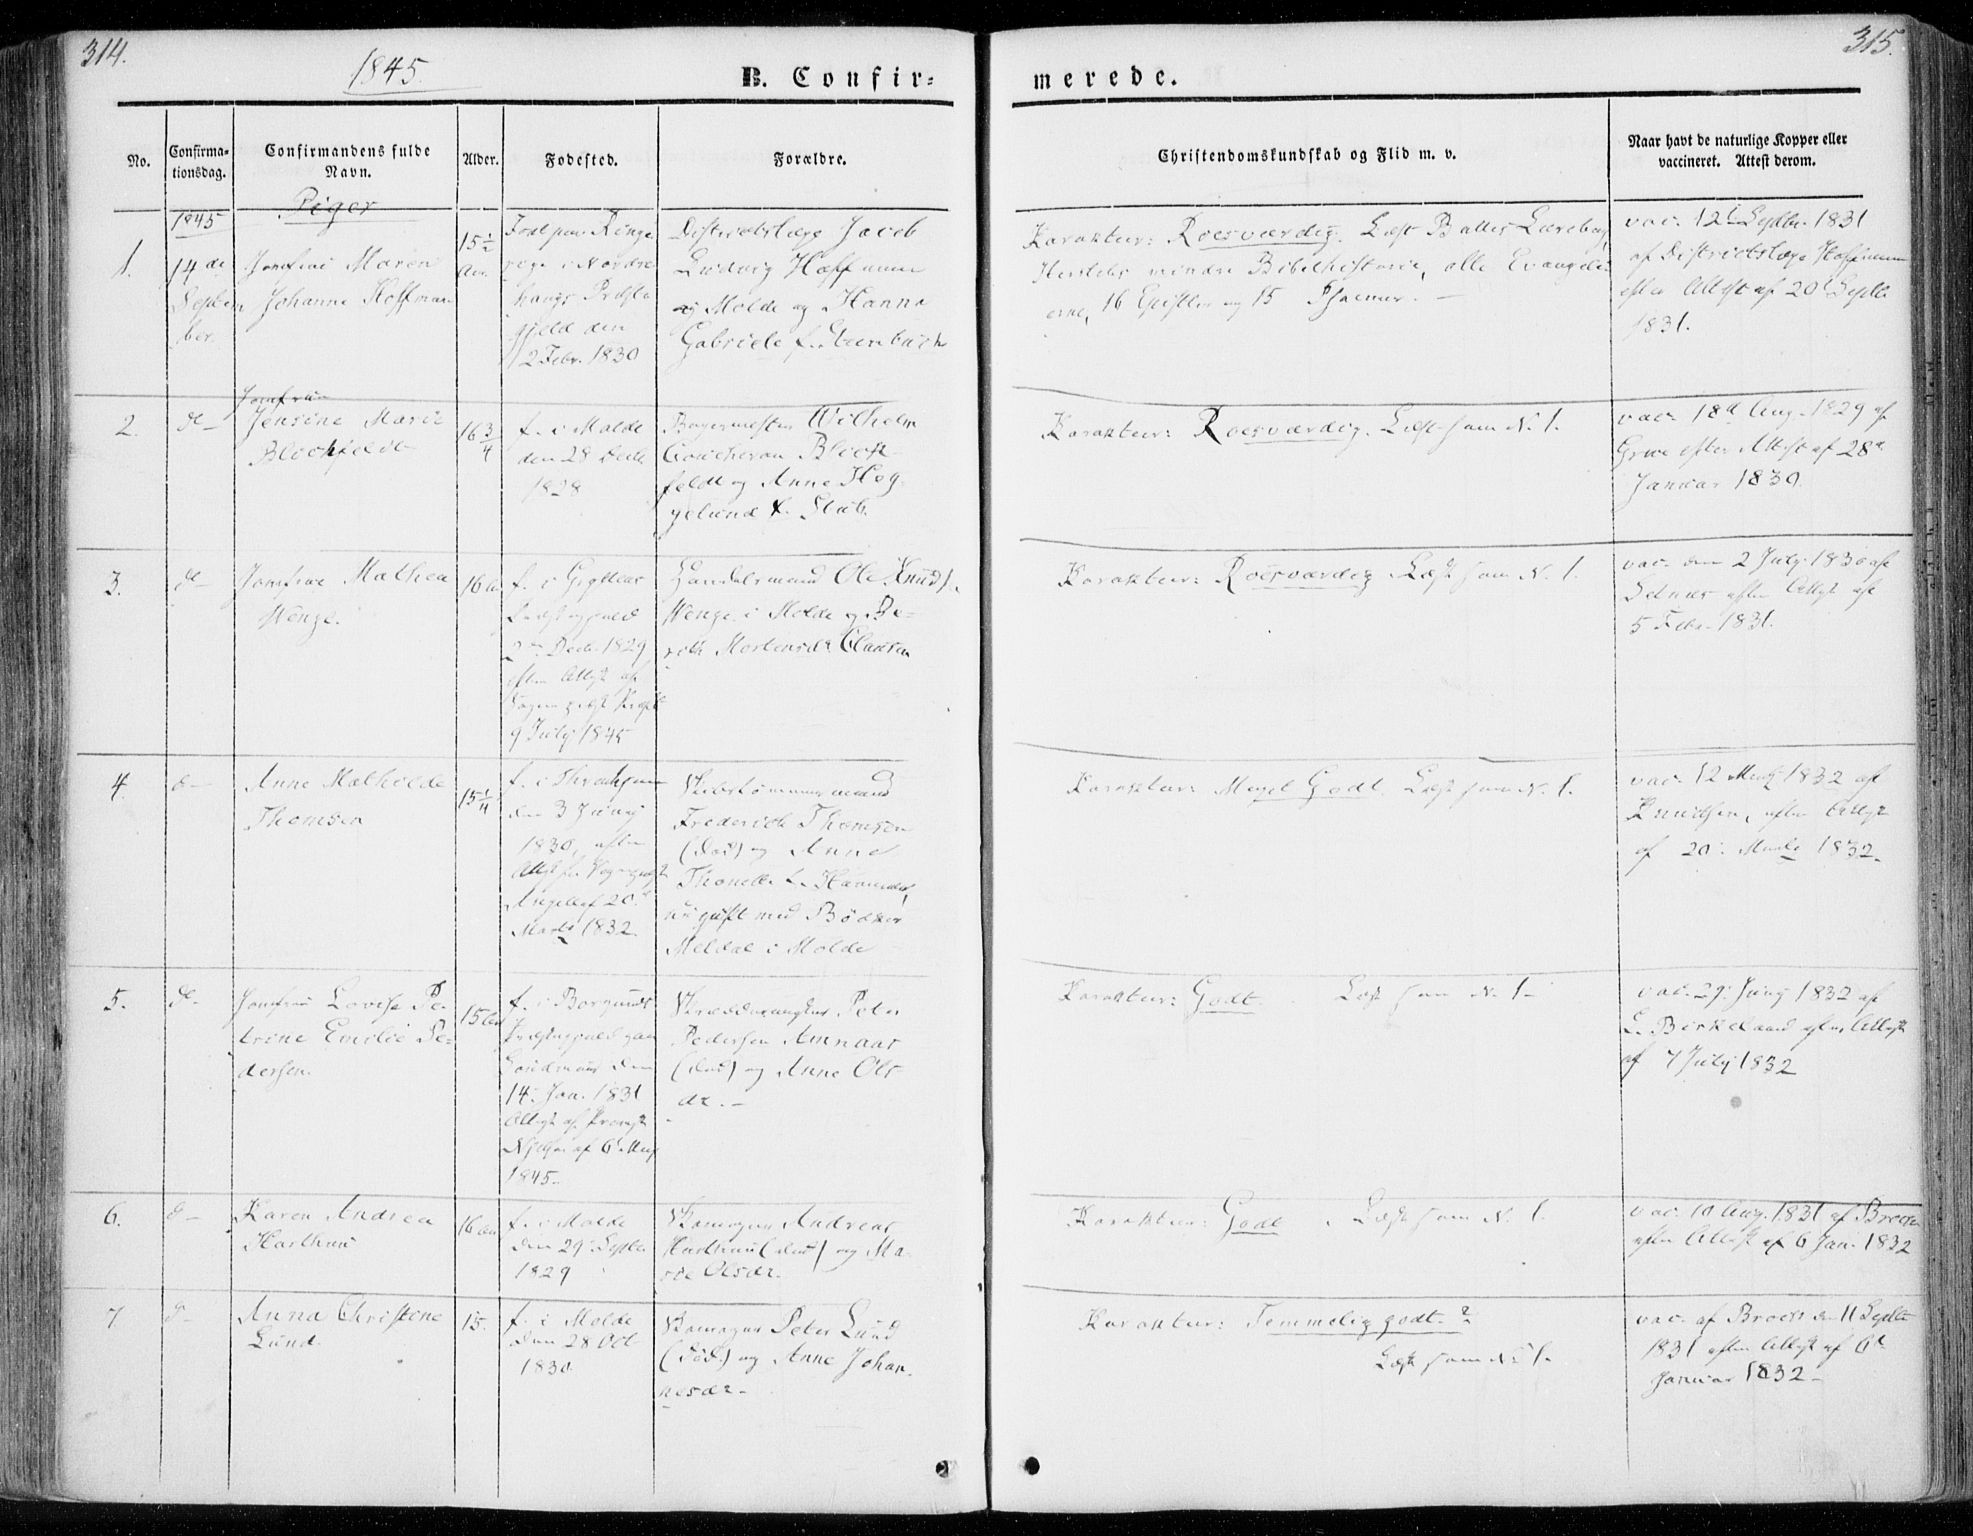 314.
1845.
B. Confir-
merede.
315.
No.
Confirma-
tionsdag.
Confirmandens fulde
Navn.
Alder.
Fødested.
Forældre.
Christendomskundskab og Flid m. v.
Naar havt de naturlige Kopper eller
vaccineret. Attest derom.
Piger
1.
1845
14de
Septem
ber.
Jomfrue Maren
Johanne Hoffman
15 1/2
Aar.
i Nordre
den
12 Febr. 1830
Districtslæge Jacob
Ludvig Hoffmann
Molde og Hanna
Gabriele f. Steenbuch
Karakteer: Roesværdig. Læst Balles Lærebog,
mindre Bibelhistorie, alle Evangeli-
erne, 16 Epistler og 15 Psalmer. -
vac. 12t Septbr. 1831
af Districtslæge Hoffmann
efter Attest af 20t Septb
1831.
2.
do-
Jomfrue
Jensine Marie
Blechfeldt
16 3/4
f. i Molde
den 28 Decb
1828
Bagermester Wilhelm
feldt og Anne Høg-
gelund f. Stub.
Karakteer: Roesværdig. Læst som N. 1.
vac. 18d Aug. 1829 af
Greve efter Attest af 28d
Januar 1830.
3.
do-
Jomfrue Mathea
Wenge.
16 Aar
f. i
Decb. 1829
efter Attest af
9 July 1845
Handelsmand Ole Knuds.
Wenge i Molde og Be-
rith Mortensdr. Clausen
Karakteer: Roesværdig Læst som N. 1.
vac. den 2 July 1830 af
Selmer efter Attest af
5 Febr. 1831.
4.
do-
Anne Mathilde
Thomsen
15 1/4
f. i Throndhjem
den 3 Juny
1830, efter
Attest fra
af 20d
Marts 1832.
Skibstømmermand
Frederich Thomsen
(død) og Anne
nu gift med Bødker
Meldal i Molde
Karakteer: Meget Godt. Læst som N. 1.
vac. 12 1832 af
Knudtzen, efter Attest
af 20. Marts 1832.
5.
do-
Jomfrue Lovise Pe-
trine Emilie Pe-
dersen.
15 Aar
f. i Borgund
Præstegjeld paa
Søndmøer den
14. Jan. 1831
Attest af Provst
af 6
1845-
Skræddermester Peter
Pedersen Amnaas
(død) og Anne Ols-
dr. -
Karakteer: Godt. Læst som N. 1-
vac. 29. Juny 1832 af
L. Birkeland efter Attest
af 7 July 1832
6.
do-
Karen Andrea
16 Aar
f. i Molde
den 29 Septbr
1829
Skomager Andreas
(død) og Ma-
rie Olsdr.
Karakteer: Godt. Læst som N. 1.
vac. 10 Aug. 1831 af
efter Attest af 6 Jan. 1832
7
do-
Anna Christine
Lund.
15.
f. i Molde
den 28 Oct
1830
Skomager Peter Lund
(død.) og Anne Johan-
nesdr-
Karakteer: Temmelig godt.
Læst som N. 1.
vac. af Brochs den 11 Septbr
1831 efter Attest af 6d
Januar 1832-